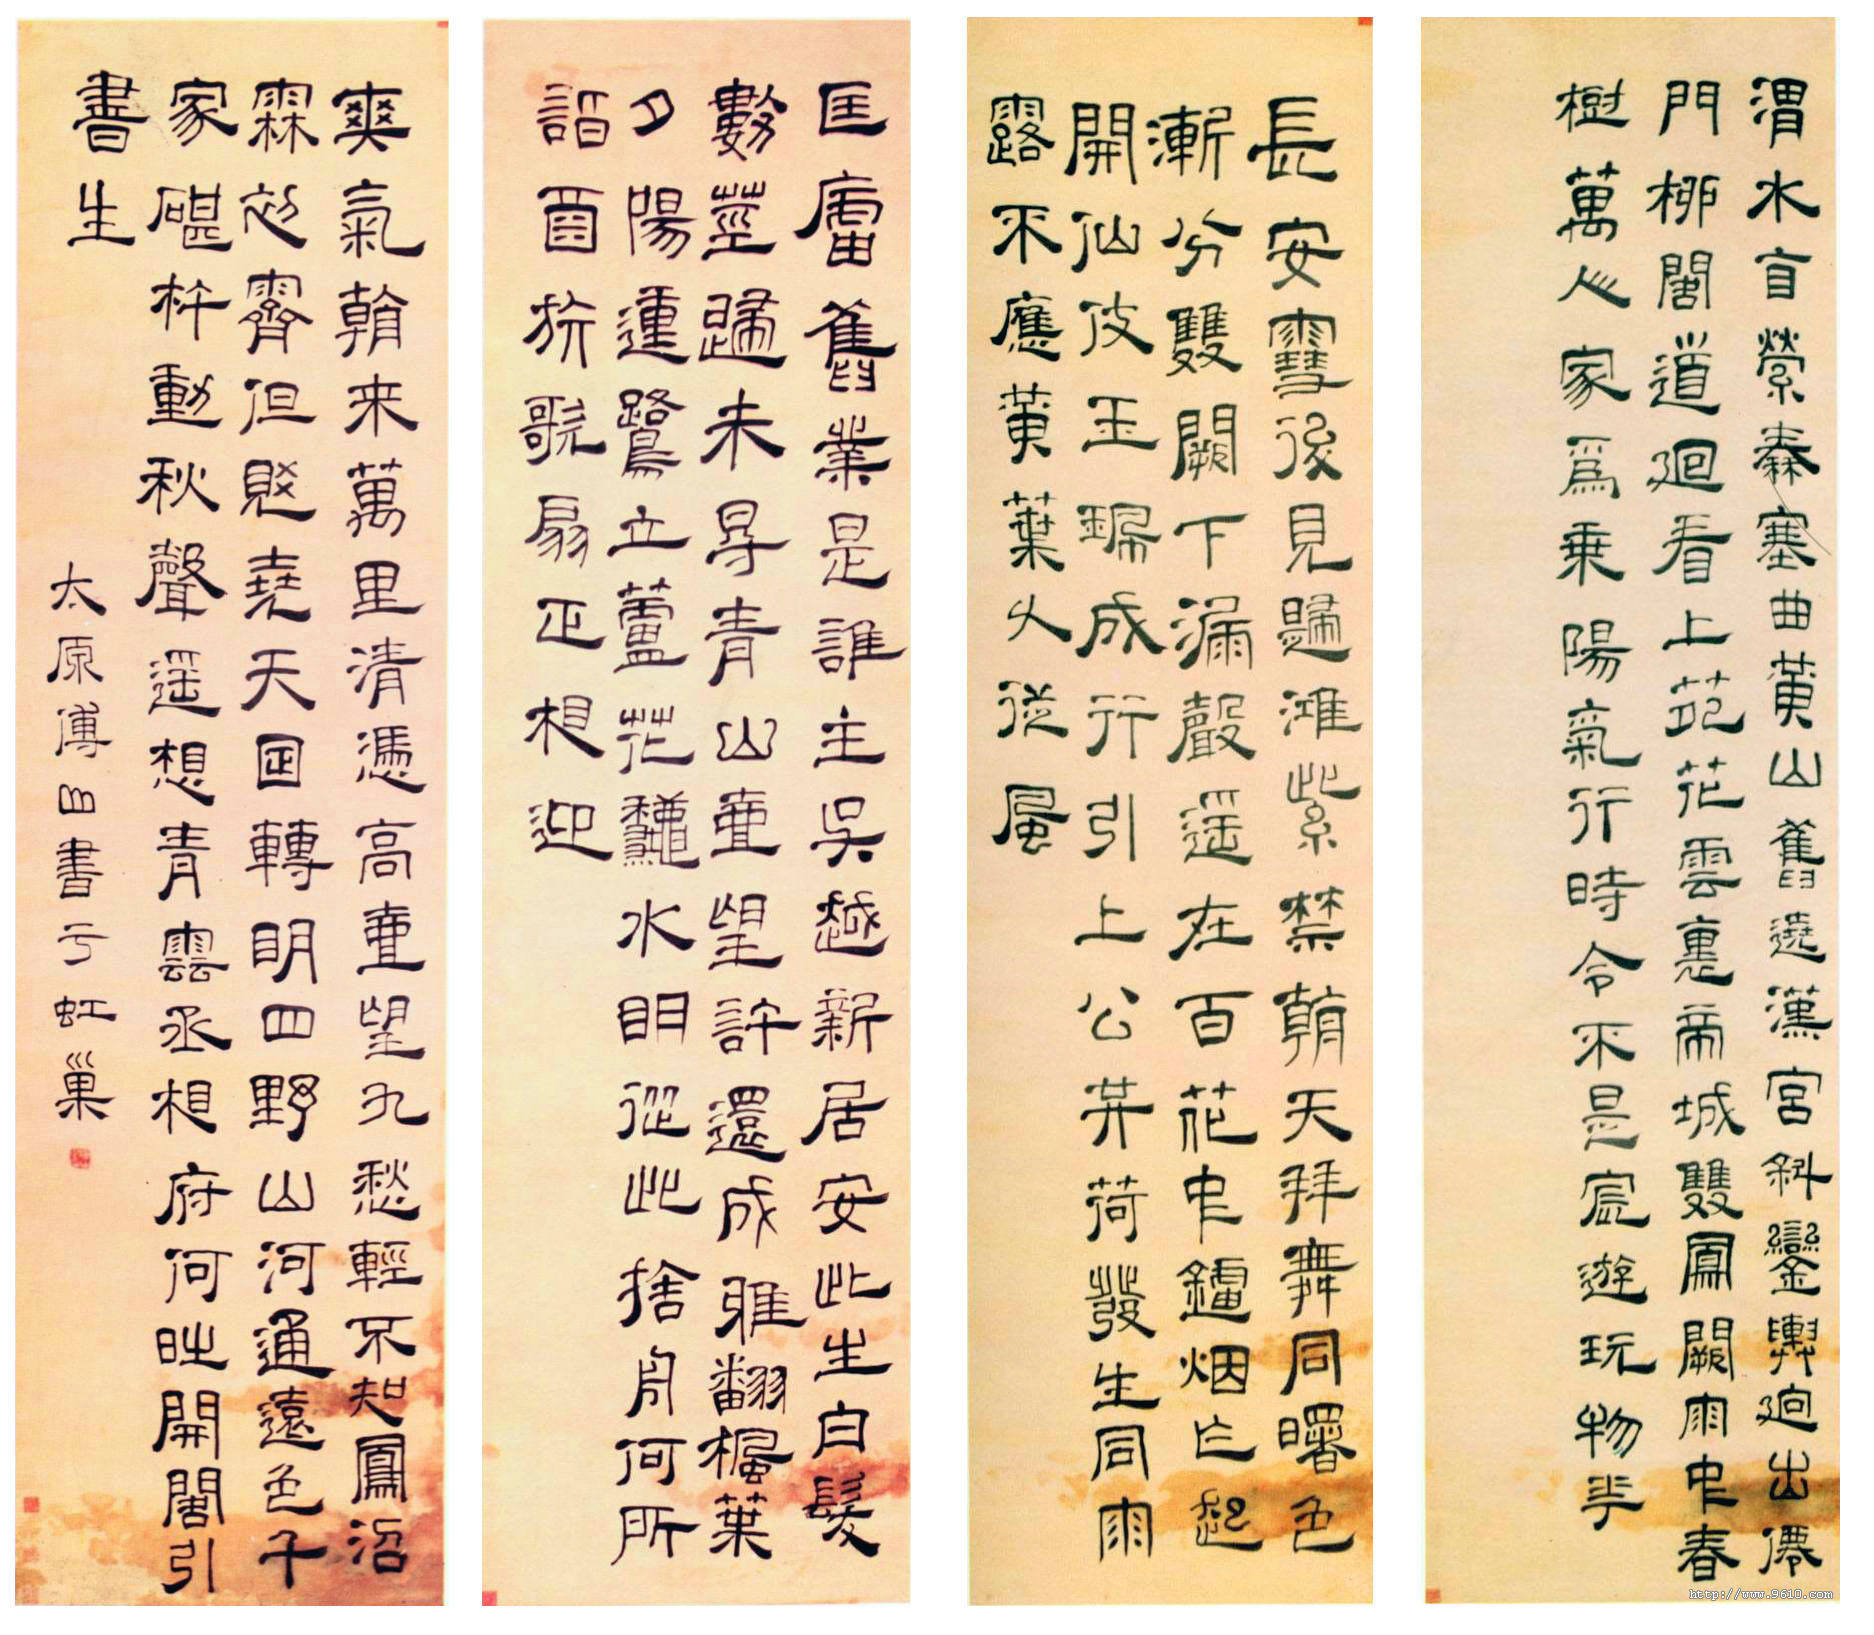 渭水自縈秦塞曲黃山舊遶漢宮斜鑾輿迥出僊
門柳閣道迴看上苑花雲裏帝城雙鳳闕雨中春
樹萬人家爲乘陽氣行時令不是宸遊玩物華
長安雪後見歸鴻紫禁朝天拜舞同曙色
漸分雙闕下漏聲遥在百花中鑪烟乍起
開仙仗玉珮成行引上公共荷發生同雨
露不應黄葉久從風
匡廬舊業是誰主吳越新居安此生白髮
數莖歸未㝵青山壹望許還成鴉翻楓葉
夕陽動鷺立蘆花秋水明從此捨舟何所
詣酒旂歌扇正相迎
爽氣朝来萬里清憑高壹望九愁輕不知鳳沼
霖初霽但覺堯天日轉明四野山河通遠色千
家碪杵動秋聲遥想青雲丞相府何時開閣引
書生
太原傅山書于虹巢
http://www.9610.com